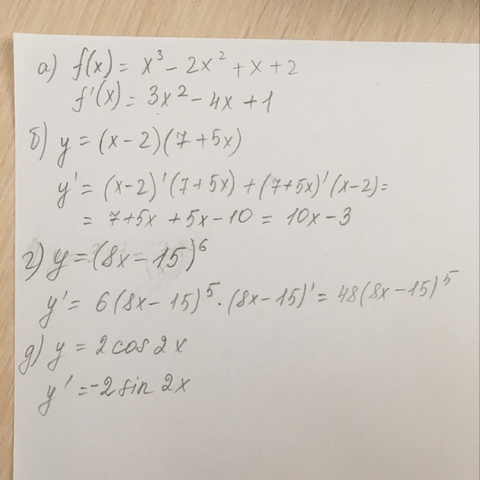 а) f(x) = x³ - 2x² + x + 2
f'(x) = 3x² - 4x + 1
б) y = (x-2)(7+5x)
y' = (x-2)'(7+5x) + (7+5x)'(x-2) =
= 7+5x + 5x-10 = 10x-3
г) y = (8x-15)⁶
y' = 6(8x-15)⁵ · (8x-15)' = 48(8x-15)⁵
д) y = 2cos 2x
y' = -2sin 2x